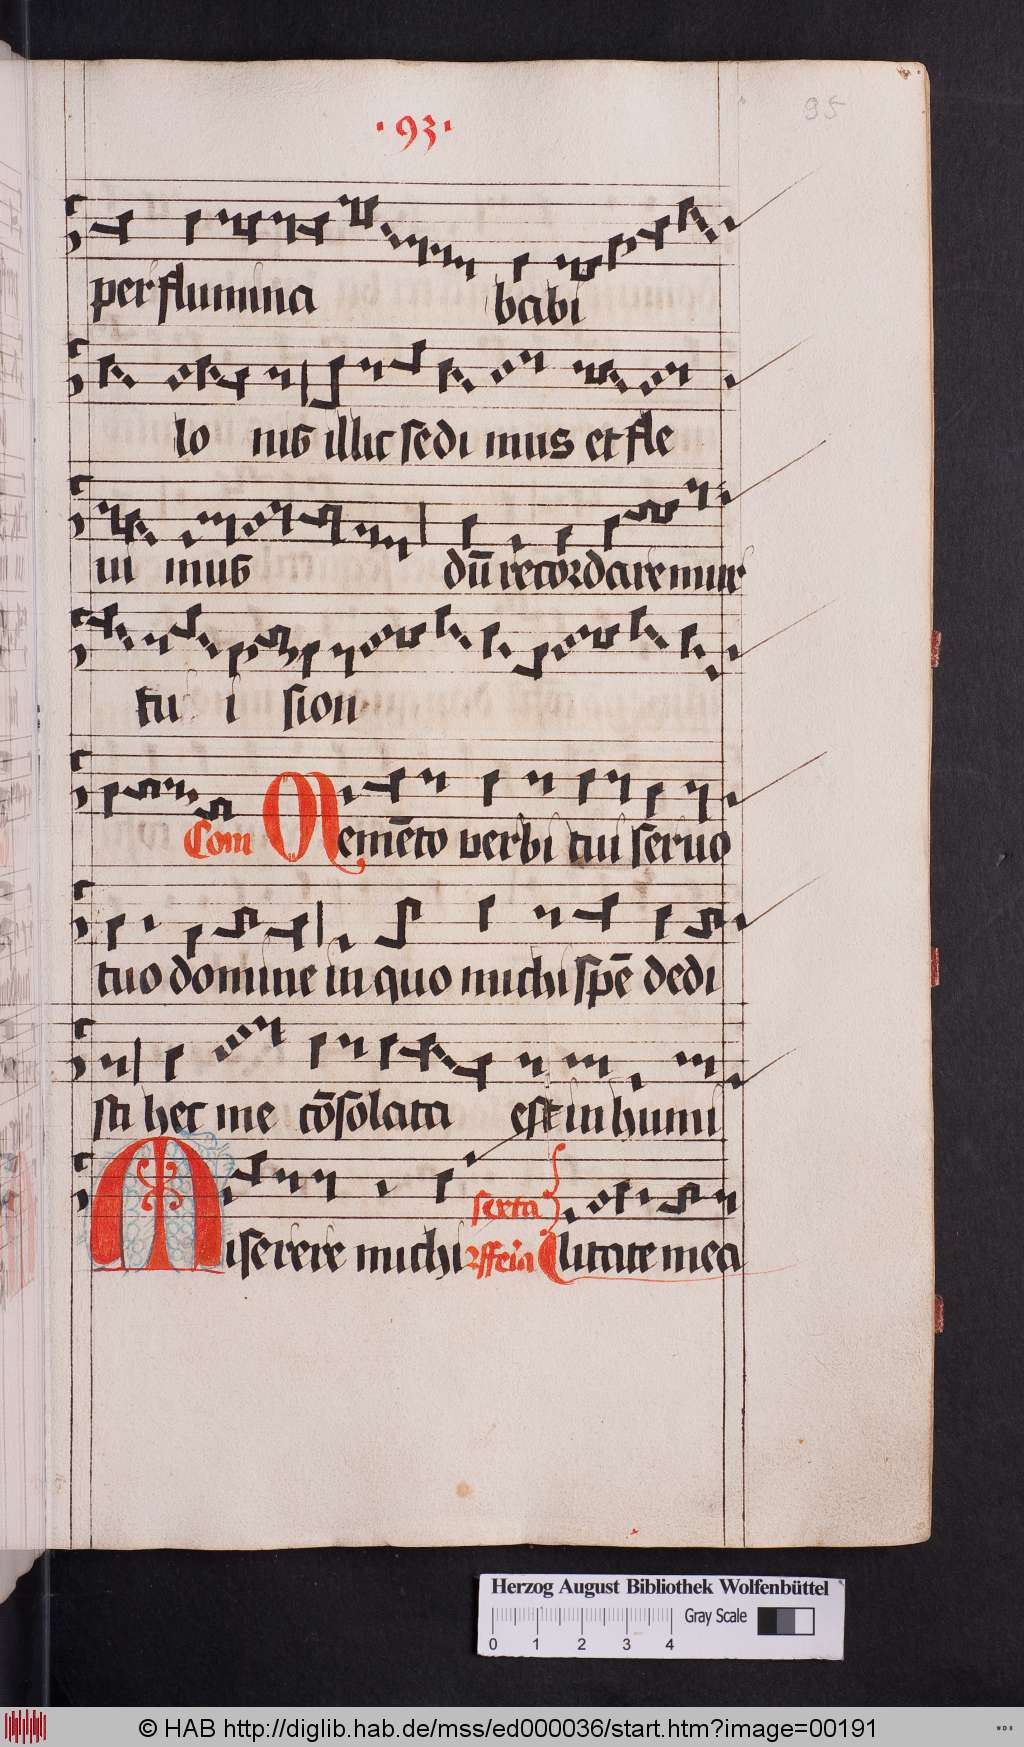 ·93·
95
per flumina babi
lo nis illic sedi mus et fle
ui mus dū recordaremur
tu i sion
Com Memēto verbi tui seruo
tuo domine in quo michi spē dedi
sti hec me cōsolata est in humi
Miserere michi sexta
ffeia litate mea
Herzog August Bibliothek Wolfenbüttel
Gray Scale
0 1 2 3 4
© HAB http://diglib.hab.de/mss/ed000036/start.htm?image=00191